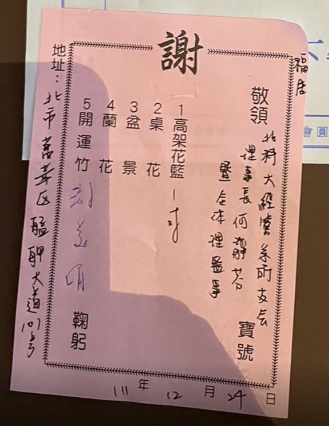 謝
敬領 北科大經管系所友長
理事長何
暨全体理監事 寶號
1高架花籃一对
2桌花
3盆景
4蘭花
5開運竹
鞠躬
地址：北市萬華区艋舺大道101号
111年12月24日
福店